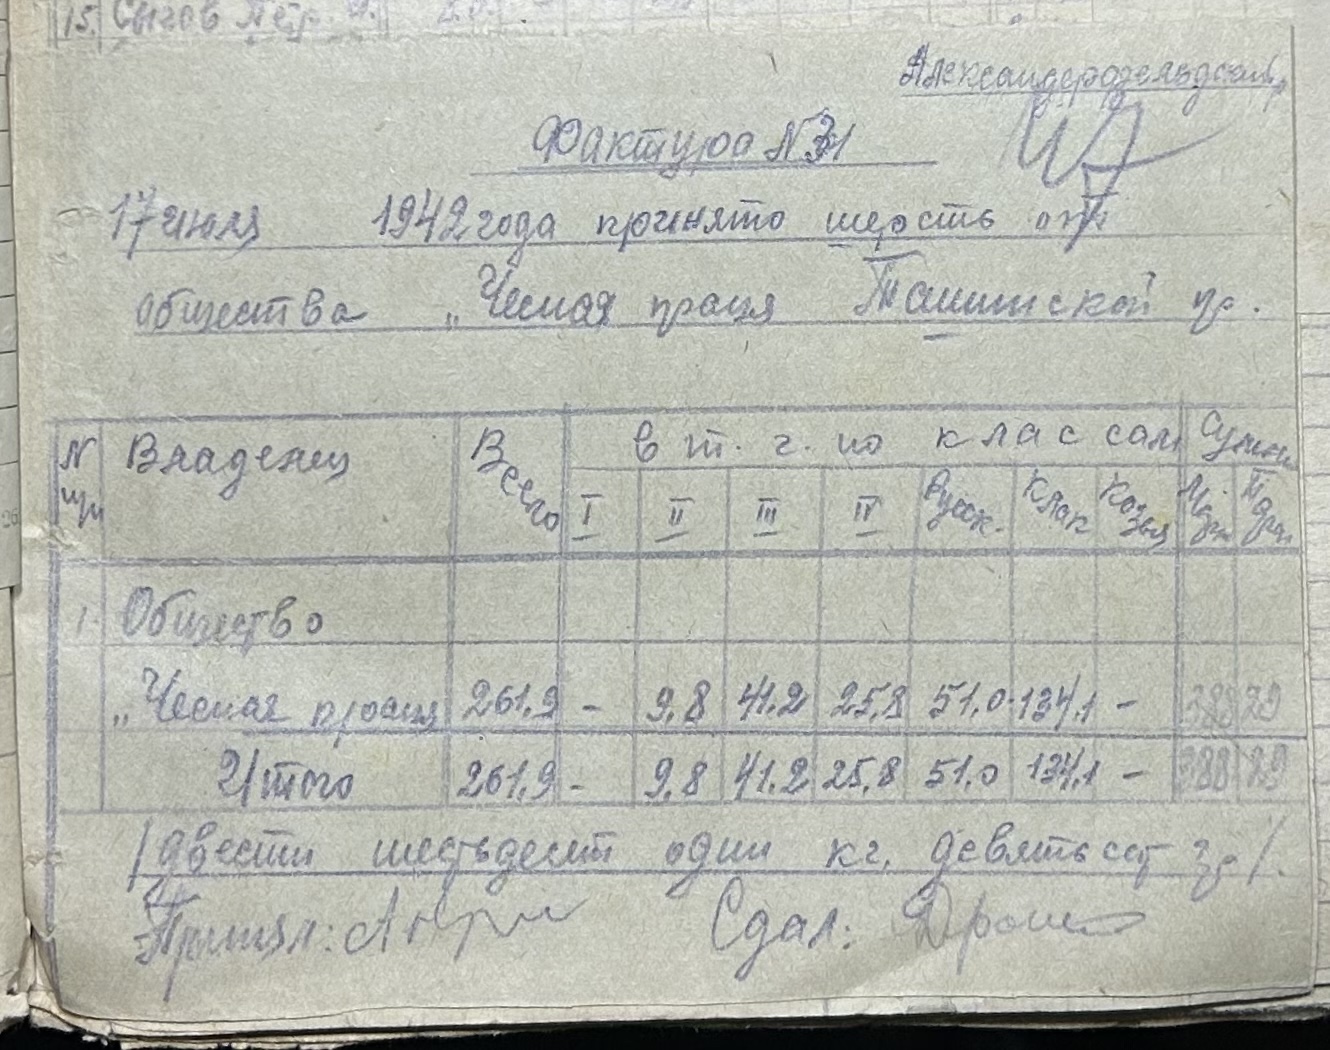 15. Сысов Пётр
Александерфельдский
Фактура №31
17 июля 1942 года принято шерсть от
общества „Чесная праця Ташинской ур.
N п/п Владелец Всего в т. г. по классам Сумма
I II III IV Русск. Клок Козья Марк
1. Общество
„Чесная працця 261,9 - 9,8 41.2 25,8 51,0 134,1 - 388 29
Итого 261,9 - 9,8 41.2 25,8 51,0 134,1 - 388 29
/двести шестьдесят один кг. девятьсот гр/.
Принял: Сдал: